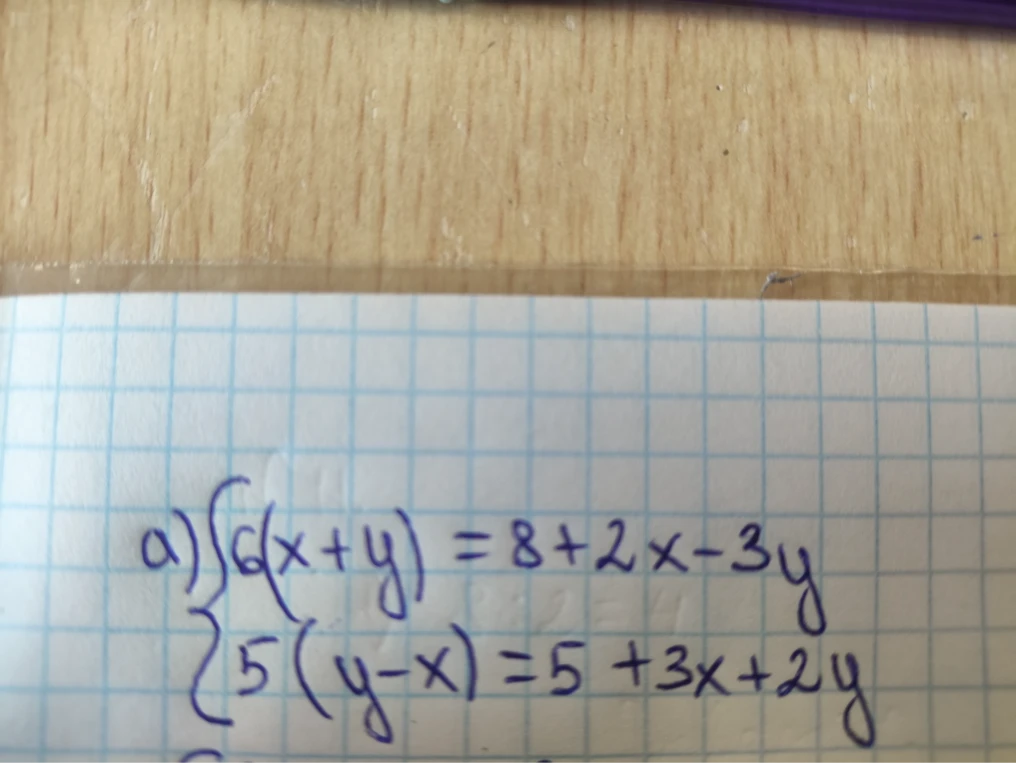 a) { 6(x+y) = 8+2x-3y
5(y-x) = 5+3x+2y